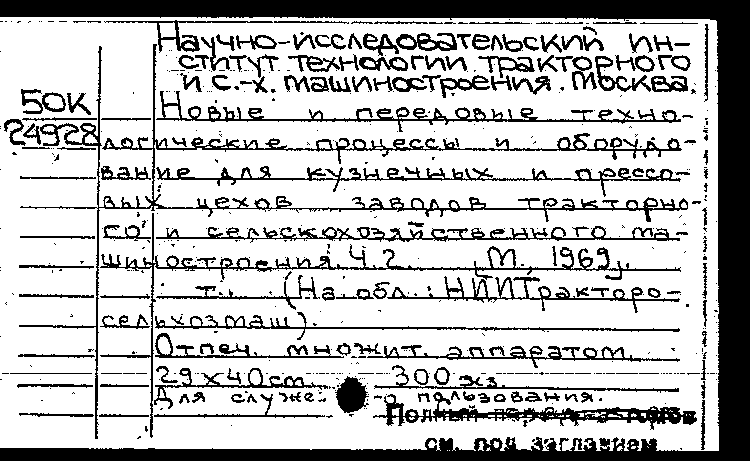 Научно-исследовательский ин-
ститут технологии тракторного
и с.-х. машиностроения. Москва.
50К
24928
Новые и передовые техно-
логические процессы и оборудо-
вание для кузнечных и прессо-
вых цехов заводов тракторно-
го и сельскохозяйственного ма-
шиностроения. Ч.2 М. 1969.
т.. (На обл.: НИИТракторо-
сельхозмаш).
Отпеч. множит. аппаратом.
29x40см. 300 экз.
Для служе- -о пользования.
Полный
см. под заглавием